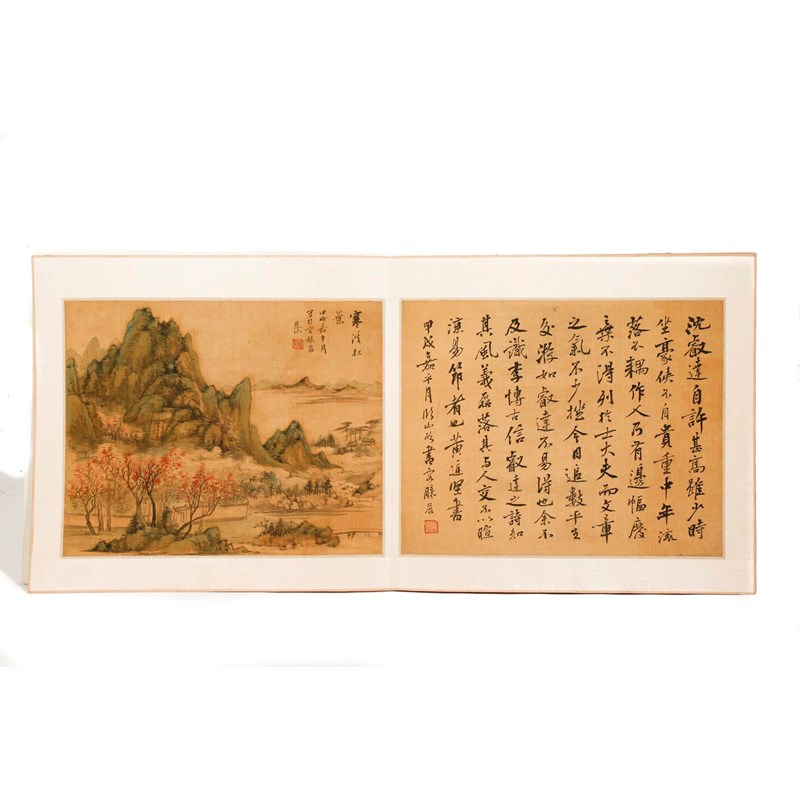 沈叡達自許甚高雖少時
坐豪俠不自貴重中年流
落不耦作人乃有邊幅廢
棄不得列於士大夫而文章
之氣不少挫今日追數平生
交游如叡達不易得也余不
及識李博古信叡達之詩知
其風義磊落其與人交不以暄
涼易節者也黃庭堅書
甲戌嘉平月
寒溪紅
葉
甲戌嘉平月